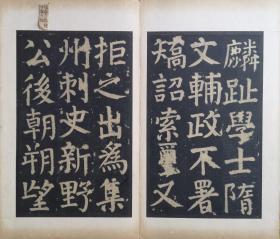 麟趾學士隋
文輔政不署
矯詔索璽又
拒之出為集
州刺史新野
公後朝朔望